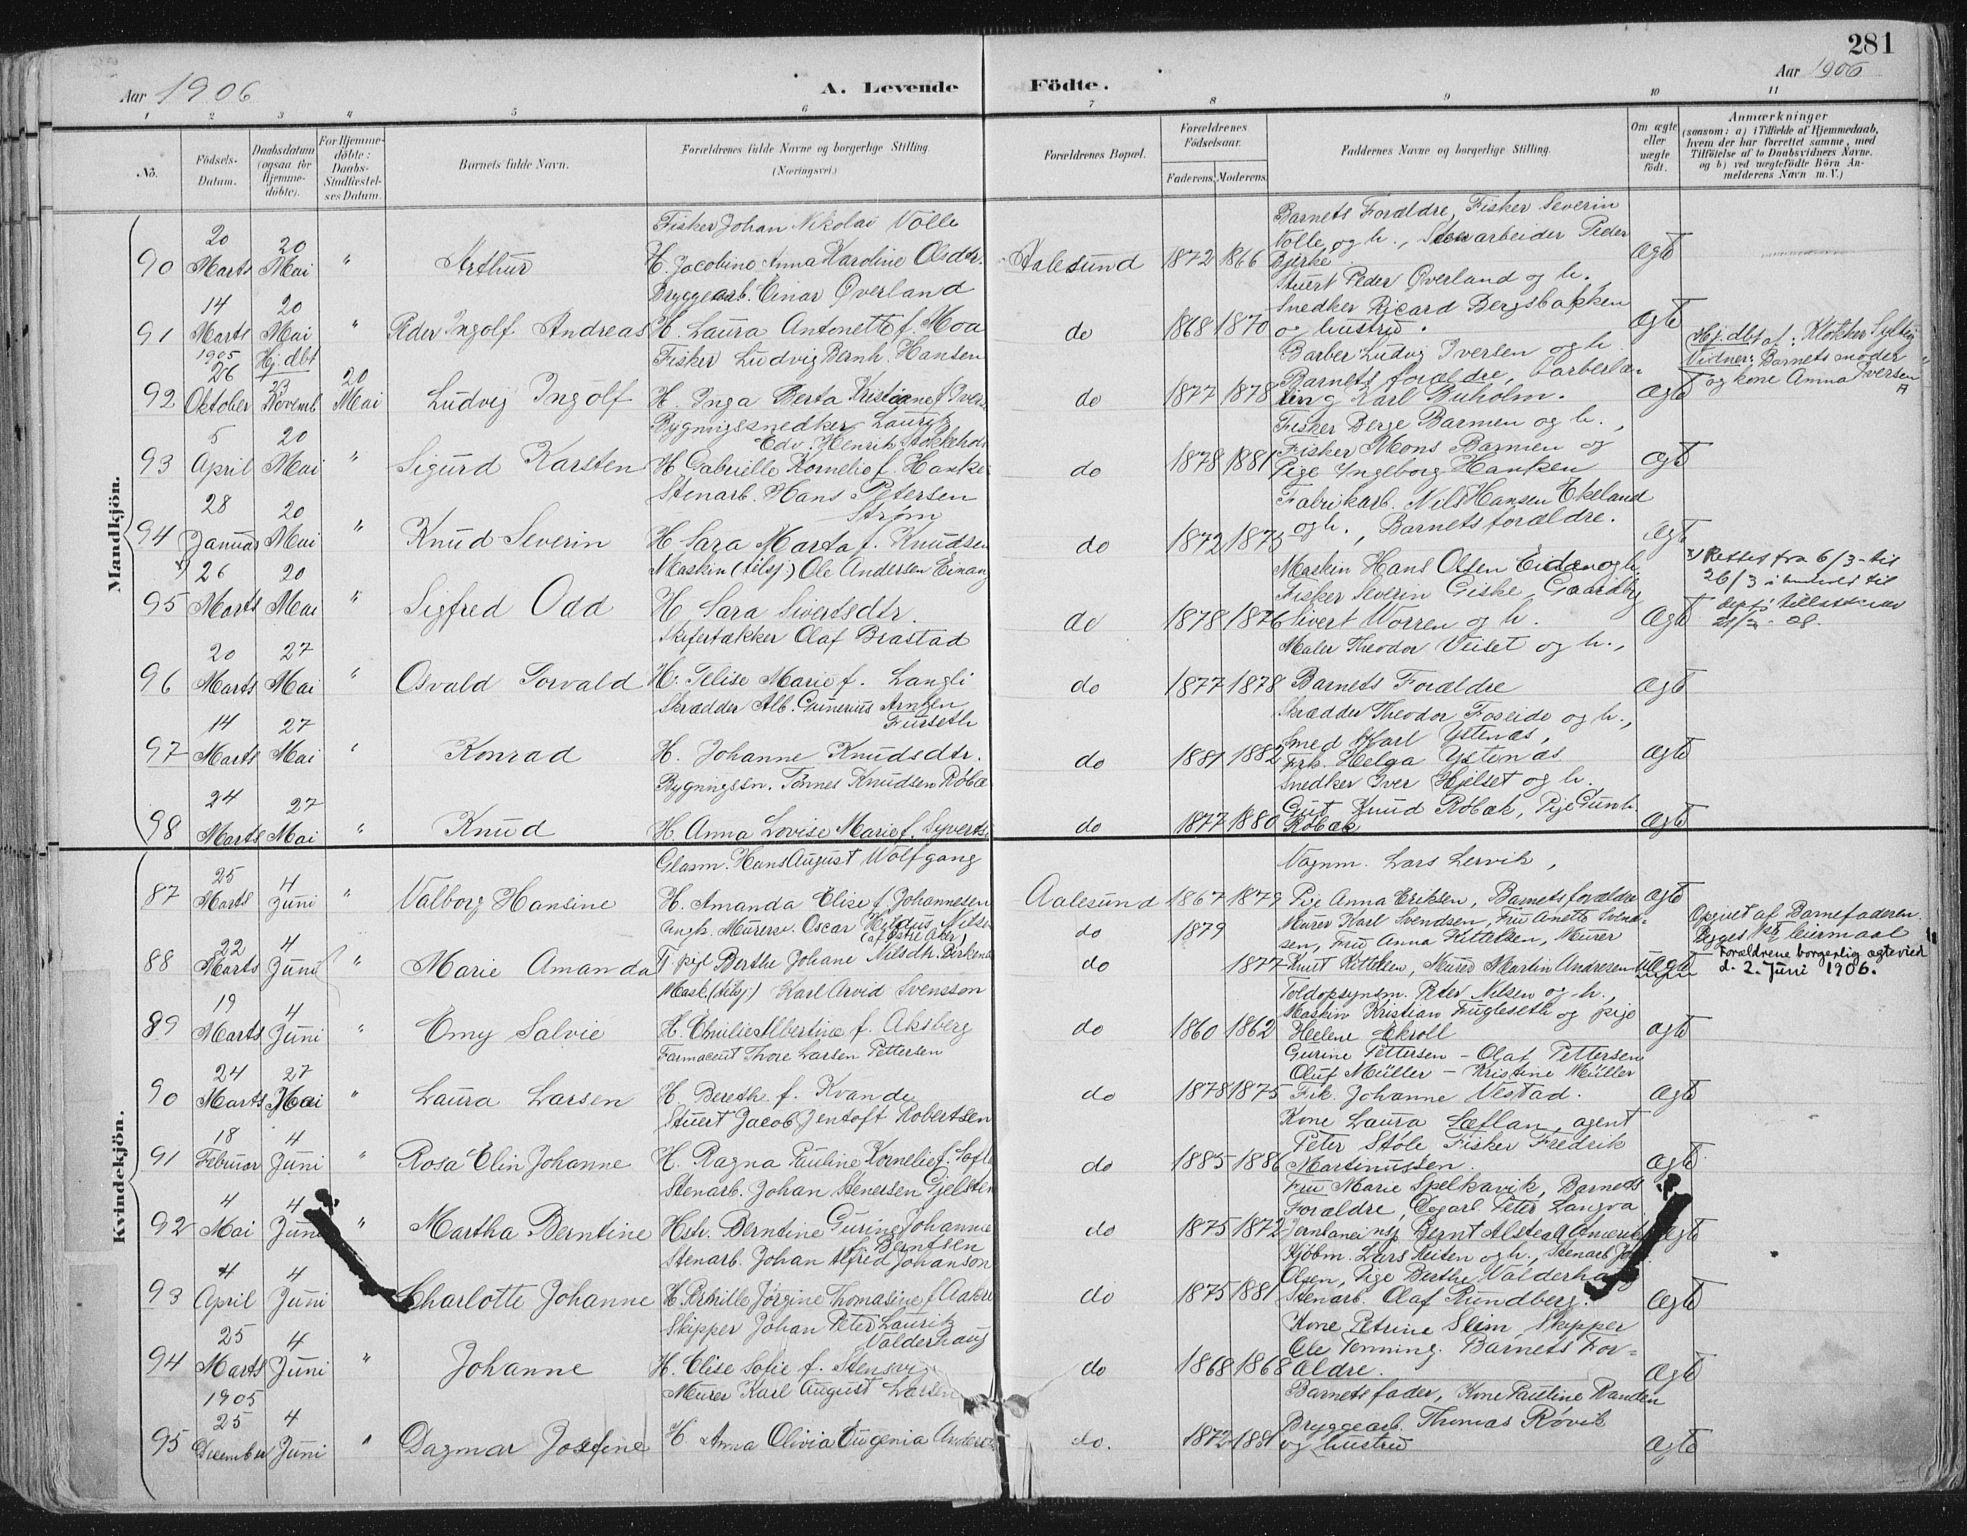 281
Aar 1906
A. Levende Födte.
Aar 1906
1 2 3 4 5 6 7 8 9 10 11
No.
Födsels-Datum.
Daabsdatum (ogsaa for Hjemmedöbte).
For Hjemmedöbte: Daabs-Stadfæstelses Datum.
Barnets fulde Navn.
Forældrenes fulde Navne og borgerlige Stilling.
(Næringsvei.)
Forældrenes Bopæl.
Forældrenes Födselsaar.
Faderens. Moderens.
Faddernes Navne og borgerlige Stilling.
Om ægte eller uægte födt.
Anmærkninger
(saasom: a) i Tilfælde af Hjemmedaab, hvem der har forrettet samme, med Tilföielse af to Daabsvidners Navne. og b) ved uægtefödte Börn Anmelderens Navn m. V.)
Mandkjön.
Fisker Johan Nikolai Volle
Barnets Forældre, Fisker Severin
20 20
Volle og h., Stenarbeider Peder
90 Marts Mai " Arthur H. Jacobine Anna Karoline Olsdtr. Aalesund 1872 1866 Bjerke ægte
Bryggearb. Einar Øverland
Stuert Peder Øverland og h.,
14 20
Snedker Ricard Bergsbakken
91 Marts Mai " Peder Ingolf Andreas H. Laura Antonette f. Moa do 1868 1870 og hustru. ægte
1905 Hj. dbt
Fisker Ludvig Bernh. Hansen
Barber Ludvig Iversen og h.
Hj. dbt af: Klokker
Vidner: Barnets moder
26 20
Barnets forældre, barberlæ-
og kone Anna Iversen
92 Oktober Novemb Mai Ludvig Ingolf H. Inga Berta Kristiane f. do 1877 1878 ling Karl Buholm. ægte
Bygningssnedker Lauritz
Fisker Berge Barmen og h.,
5 20
Edv. Henrik
Fisker Mons Barmen og
93 April Mai " Sigurd Karsten H Gabrielle Kornelie f. do 1878 1881 Pige Ingeborg Hanken ægte
Stenarb. Hans Petersen
Fabrikarb. Nils Hansen Ekeland
28 20
Strøm
94 Januar Mai " Knud Severin H Sara Marta f. Knudsen do 1872 1873 og h., Barnets forældre. ægte
Maskin (tilsj.) Ole Andersen Einang
Maskin Hans Olsen Eiden og h.
x) Rettet fra 6/3 til
26/3 i henhold til
26 20
Fisker Severin Giske, Gaardbr
95 Marts Mai " Sigfred Odd H Sara Sivertsdtr. do 1878 1876 Sivert Worren og h. ægte
Skifertækker Olaf Brastad
20 27
Maler Theodor Veiset og h.,
96 Marts Mai " Osvald Torvald H. Telise Marie f. Langli do 1877 1878 Barnets Forældre ægte
Skrædder Alb. Gunerius Arntzen
14 27
Furseth
Skrædder Theodor Foseide og h.,
Smed Karl Ystenæs,
97 Marts Mai " Konrad H. Johanne Knudsdtr. do 1881 1882 Frk. Helga Ystenæs ægte
Bygningssn. Tønnes Knudsen Robæ
Snedker Iver Hjelset og h.
24 27
Gut Knud Robæk, Pige Gunh.
98 Marts Mai " Knud H Anna Lovise Marie f. Syverts do 1877 1880 Robæk ægte
Kvindekjön.
Glasm. Hans August Wolfgang
Vognm. Lars Lervik,
25 4
87 Marts Juni " Valborg Hansine H. Amanda Elise f. Johannesen Aalesund 1867 1879 Pige Anna Eriksen, Barnets forældre ægte
Ungk. Murersv. Oscar Nilse
do 1879
Murer Karl Svendsen, Fru Anette Svend-
Opgivet af Barnefaderen.
22 4
(af Østre Aker)
sen, Fru Anna Kittelsen, Murer
Begges 1ste leiermaal
88 Marts Juni " Marie Amanda T. pige Berthe Johane Nilsdtr. do 1877 Knut Kittelsen, Murer Martin Andresen uægte
Forældrene borgerlig ægteviet
d. 2. Juni 1906.
Mask. (tilsj.) Karl Arvid Svensson
Toldopsynsm. Peter Nilsen og h.,
19 4
Maskin Kristian Fugleseth og pige
89 Marts Juni " Emy Salvie H. Emilie Albertine f. Aksberg do 1860 1862 Helene Ekroll ægte
Farmaceut Thore Larsen Pettersen
Gurine Pettersen - Olaf Pettersen
24 27
Oluf Müller - Kristine Müller
90 Marts Mai " Laura Larsen H. Berethe f. Kvande do 1878 1875 Frk. Johanne Vestad. ægte
Stuert Jacob Jentoft Robertsen
Kone Laura Sætlan, agent
18 4
Peter Støle Fisker Fredrik
91 Februar Juni " Rosa Elin Johanne H. Ragna Pauline Kornelie f. do 1885 1886 Martinussen. ægte
Stenarb. Johan Stenersen Gjelsten
Fru Marie Spelkavik, Barnets
4 4
Forældre, Peter Langva
92 Mai Juni " Martha Berntine Hstr. Berntine Gurine Johanne do 1875 1872 Bernt Alstea ægte
Berntsen
Stenarb. Johan Alfred Johanson
Kjøbm. Lars Reiten og h., Stenarb. Joh
4 4
Olsen, Pige Berthe Valderhaug
93 April Juni Charlotte Johanne H. Pernille Jørgine Thomasine f. Aakre do 1875 1881 Stenarb. Olaf Rundberg. ægte
Skipper Johan Peter Lauritz
Valderhaug
Kone Petrine Slem, Skipper
25 4
Ole Tenning. Barnets For-
94 Marts Juni " Johanne H. Elise Sofie f. Stensø do 1868 1868 ældre. ægte
1905
Murer Karl August Larsen
Barnets fader, Kone Pauline Randen
25 4
Bryggearb. Thomas Røvik
95 December Juni " Dagmar Josefine H Anna Olivia Eugenia Anders do. 1872 1881 og hustru ægte